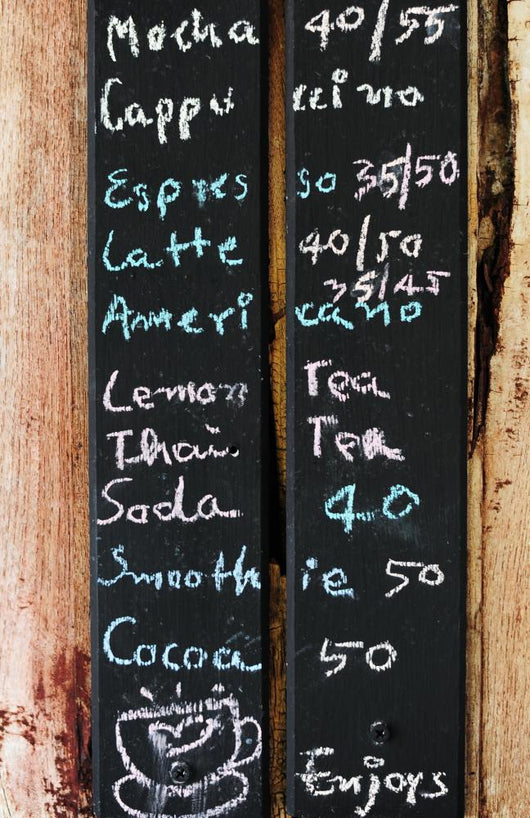 Mocha 40/55
Cappuccino
Espresso 35/50
Latte 40/50
35/45
Americano
Lemon Tea
Thai Tea
Soda 40
Smoothie 50
Cococa 50
Enjoys